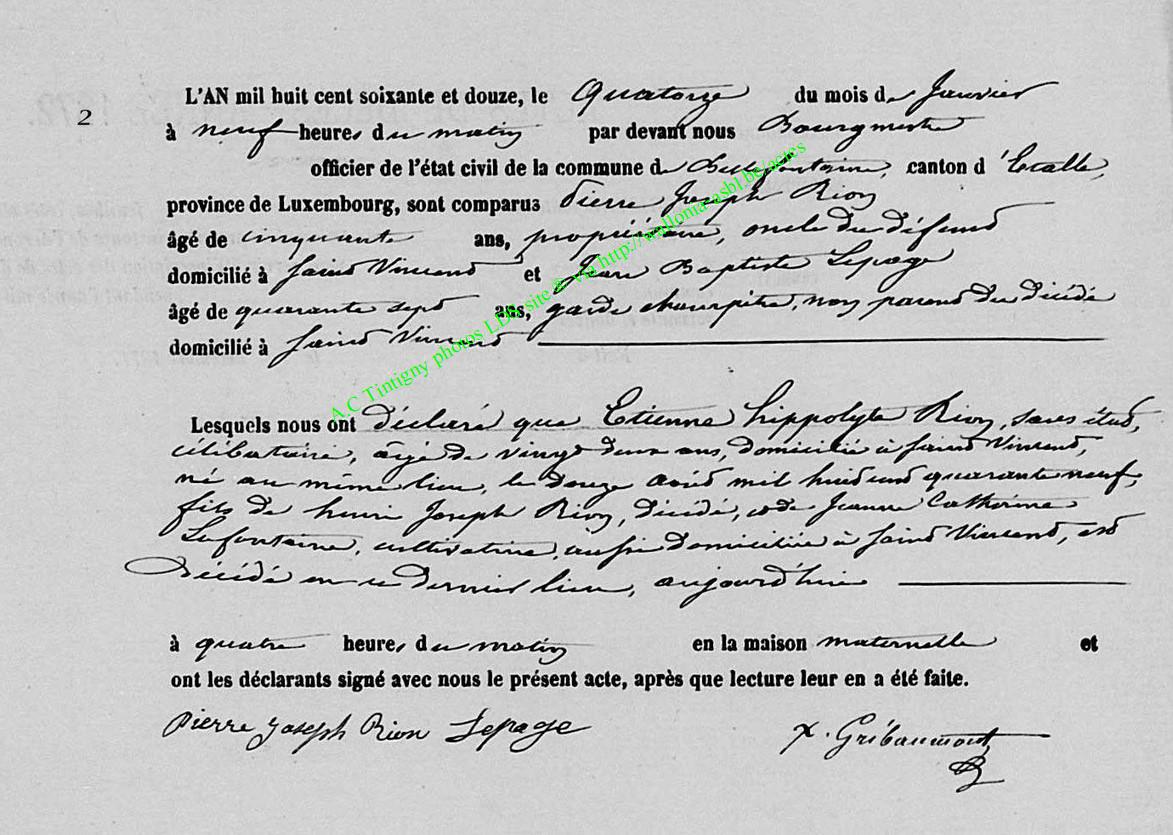 L'AN mil huit cent soixante et douze, le Quatorze du mois de Janvier
2
à neuf heures du matin par devant nous Bourgmestre
officier de l'état civil de la commune de Bellefontaine, canton d'Etalle,
province de Luxembourg, sont comparus Pierre Joseph Rion
âgé de cinquante ans, propriétaire, oncle du défunt
domicilié à Saint Vincent et Jean Baptiste Lepage
âgé de quarante sept ans, garde champêtre, non parent du décédé
domicilié à Saint Vincent
A.C Tintigny photos LDB site & via http://wallonia-asbl.be/actes
Lesquels nous ont déclaré que Etienne hippolyte Rion, sans état,
célibataire, âgé de vingt deux ans, domicilié à Saint Vincent,
né au même lieu, le douze août mil huit cent quarante neuf,
fils de henri Joseph Rion, décédé, et de Jeanne Catherine
Lafontaine, cultivatrice, aussi domiciliée à Saint Vincent, est
décédé en ce dernier lieu, aujourd'hui
à quatre heures du matin en la maison maternelle et
ont les déclarants signé avec nous le présent acte, après que lecture leur en a été faite.
Pierre Joseph Rion Lepage X. Gribaumont